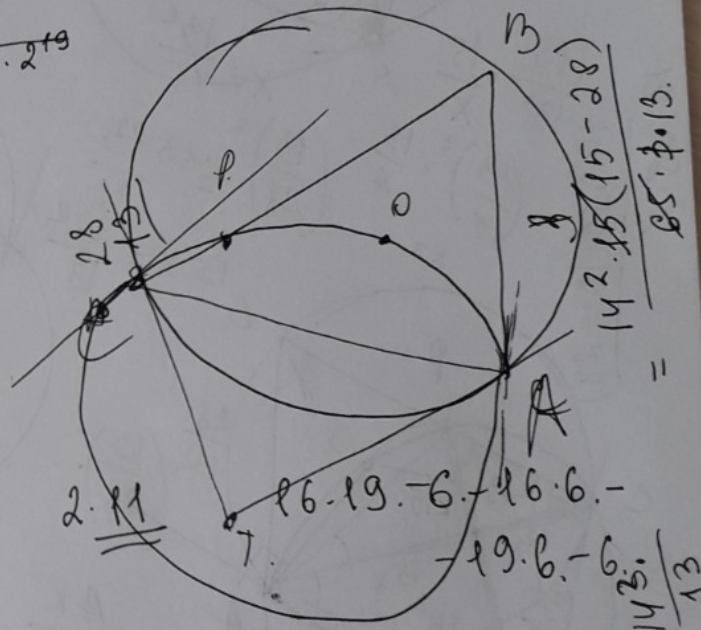 · 2¹⁹
B
P
O
28
13
8
14².15(15-28)
65.7.13.
=
A
2.11
T.
16.19.-6.-16.6.-
-19.6.-6.
143.
13